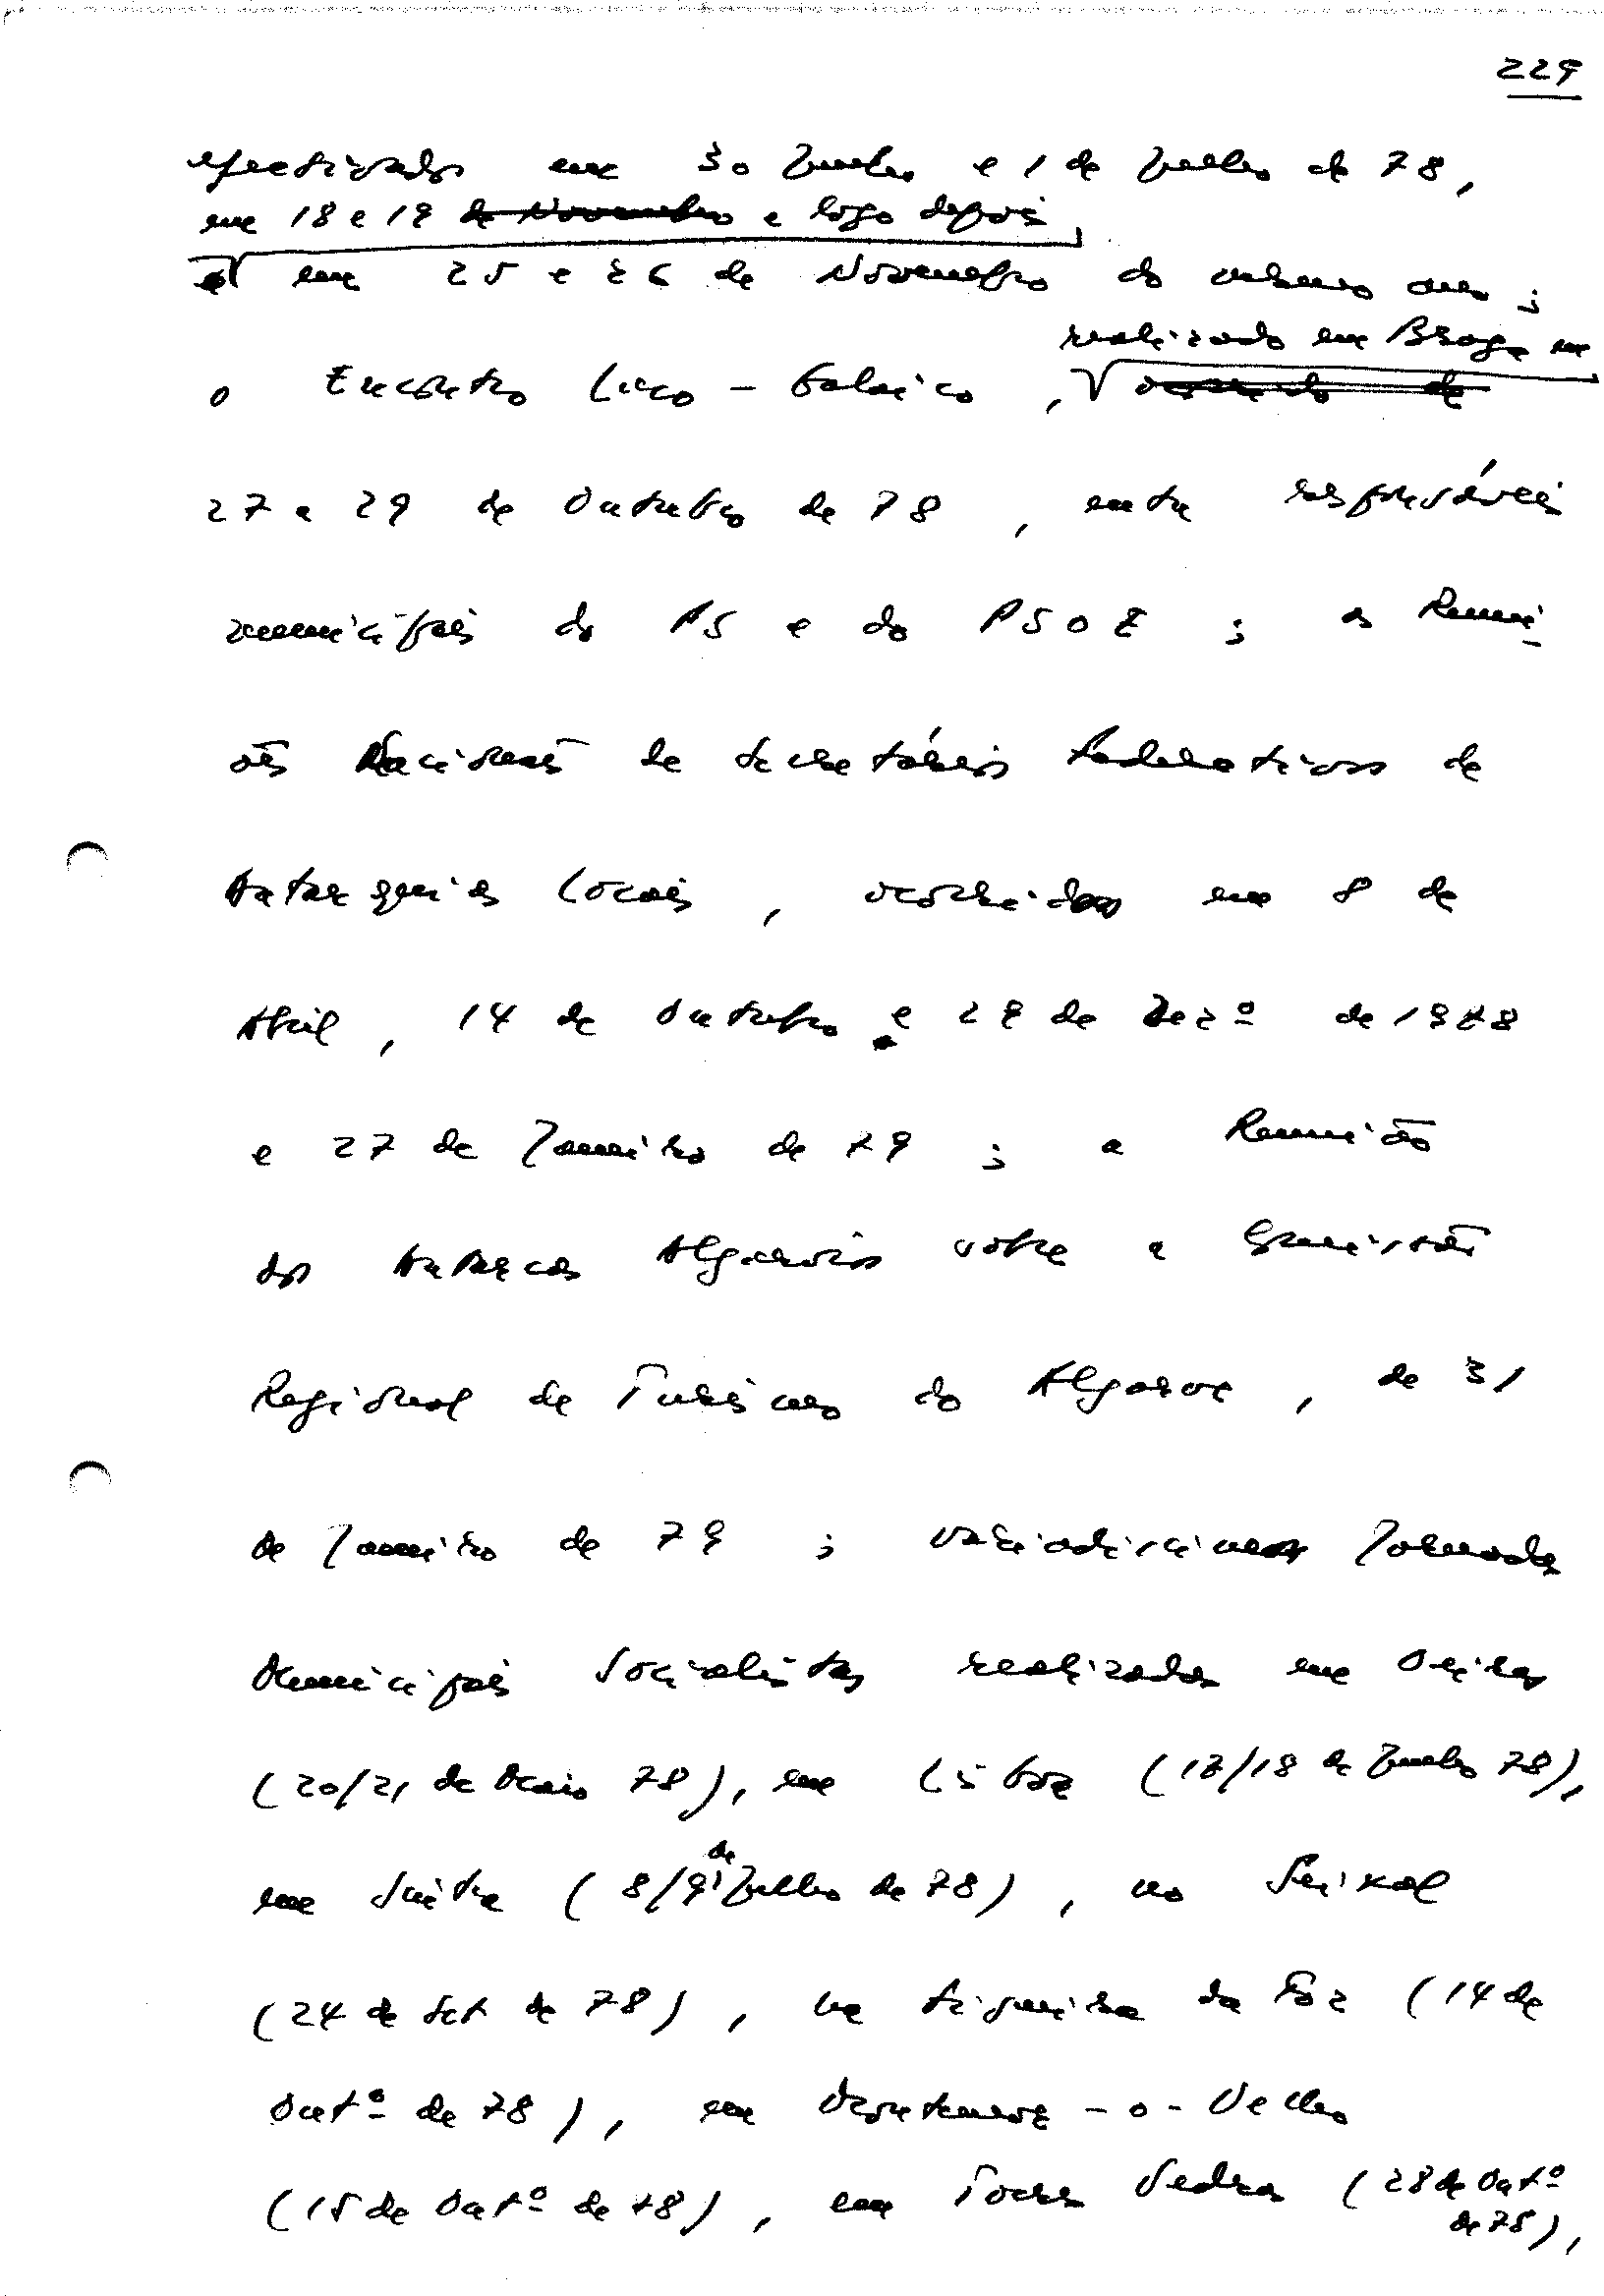 229
efectivados em 30 Junho e 1 de Julho de 78,
em 18 e 19 de Novembro e logo depois
e em 25 e 26 de Novembro do mesmo ano ;
realizado em Braga em
o Encontro Luso - Galaico ,
27 e 29 de Outubro de 78 , entre responsáveis
municipais do PS e do PSOE ; as Reuni-
ões Nacionais de Secretários Federativos de
Autarquias Locais , ocorridas em 8 de
Abril , 14 de Outubro e 28 de Dezº de 1978
e 27 de Janeiro de 79 ; a Reunião
dos Autarcas Algarvios sobre a Comissão
Regional de Turismo do Algarve , de 31
de Janeiro de 79 ; Jornadas
Municipais Socialistas realizadas em Oeiras
(20/21 de Maio 78), em Lisboa (17/18 de Junho 78),
de
em Sintra (8/9 Julho de 78) , no Seixal
(24 de Set de 78) , na Figueira da Foz (14 de
Outº de 78) , em Montemor - o - Velho
(15 de Outº de 78) , em Torres Vedras (28 de Outº
de 78) ,